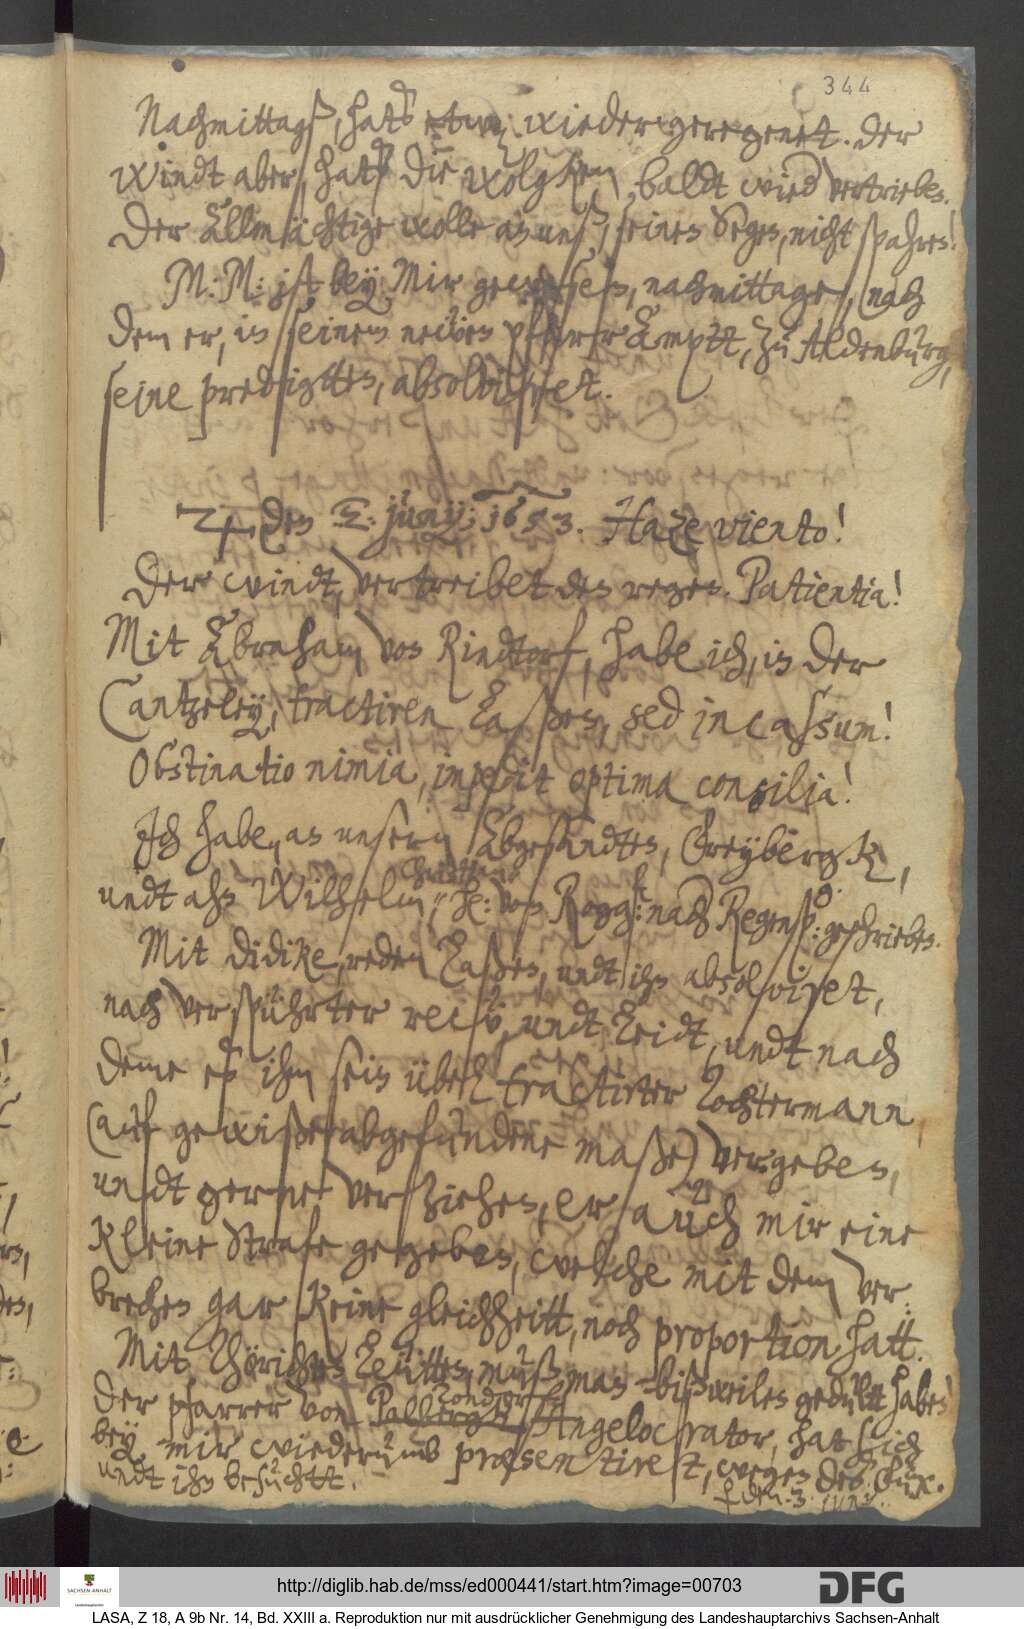 344
Nachmittagß, hats etwaß wieder geregenet. Der
windt aber, hatt die wolgken, baldt wied vertrieben.
Der Allmächtige wolle an unß, seinen Segen, nicht spahren!
M: M: ist bey Mir gewesen, nachmittages, nach
dem er, in seinem neẅen pfarrAmptt, zu Aldenburg,
seine predigtten, absolviret.
♃ den 2: Juny: 1653. Haze viento!
Der windt, vertreibet den regen. Patientia!
Mit Abraham von Rindtorf, habe ich, in der
Cantzeley, tractiren laßen, sed in cassum!
Obstinatio nimia, impedit optima consilia!
Ich habe, an unsern Abgesandten, Freyberg K,
undt ahn Wilhelm, H: von Rogg: nach Regensp: geschrieben.
Mit Didike reden laßen, undt ihn absolviret,
nach verspührter rew, undt leidt, undt nach
deme eß ihm sein übel tractirter Tochtermann
(auf gewiße abgefundene maße) vergeben,
undt gerne verziehen, er auch mir eine
Kleine Strafe gegeben, welche mit dem ver-
brechen gar keine gleichheitt, noch proportion hatt.
Mit Thörichten Leütten, muß man bißweilen gedultt haben!
Der pfarrer von Palberg Angelocrator, hat sich
bey mir wiederumb præsentiret, wegen des Ehx.
undt ihn besuchtt.
♀ den: 3. Juny.
http://diglib.hab.de/mss/ed000441/start.htm?image=00703
SACHSEN-ANHALT
DFG
LASA, Z 18, A 9b Nr. 14, Bd. XXIII a. Reproduktion nur mit ausdrücklicher Genehmigung des Landeshauptarchivs Sachsen-Anhalt